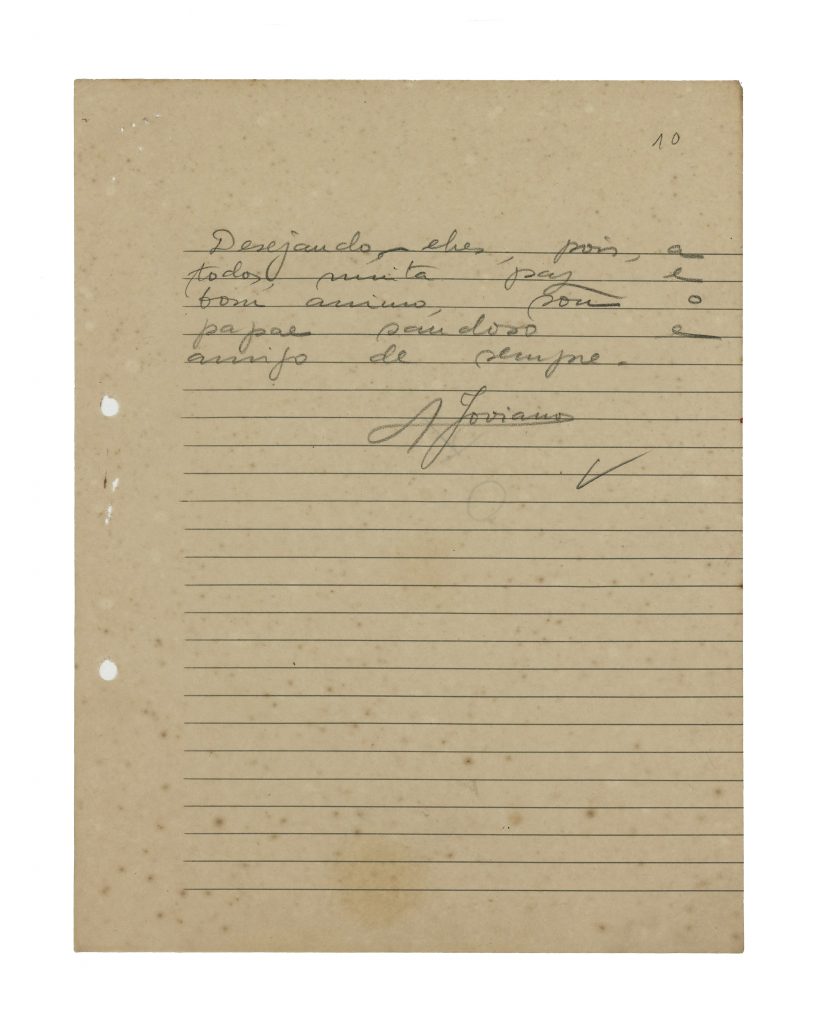 10
Desejando-lhes, pois, a
todos, muita paz e
bom animo, sou o
papae saudoso e
amigo de sempre.
A Joviano